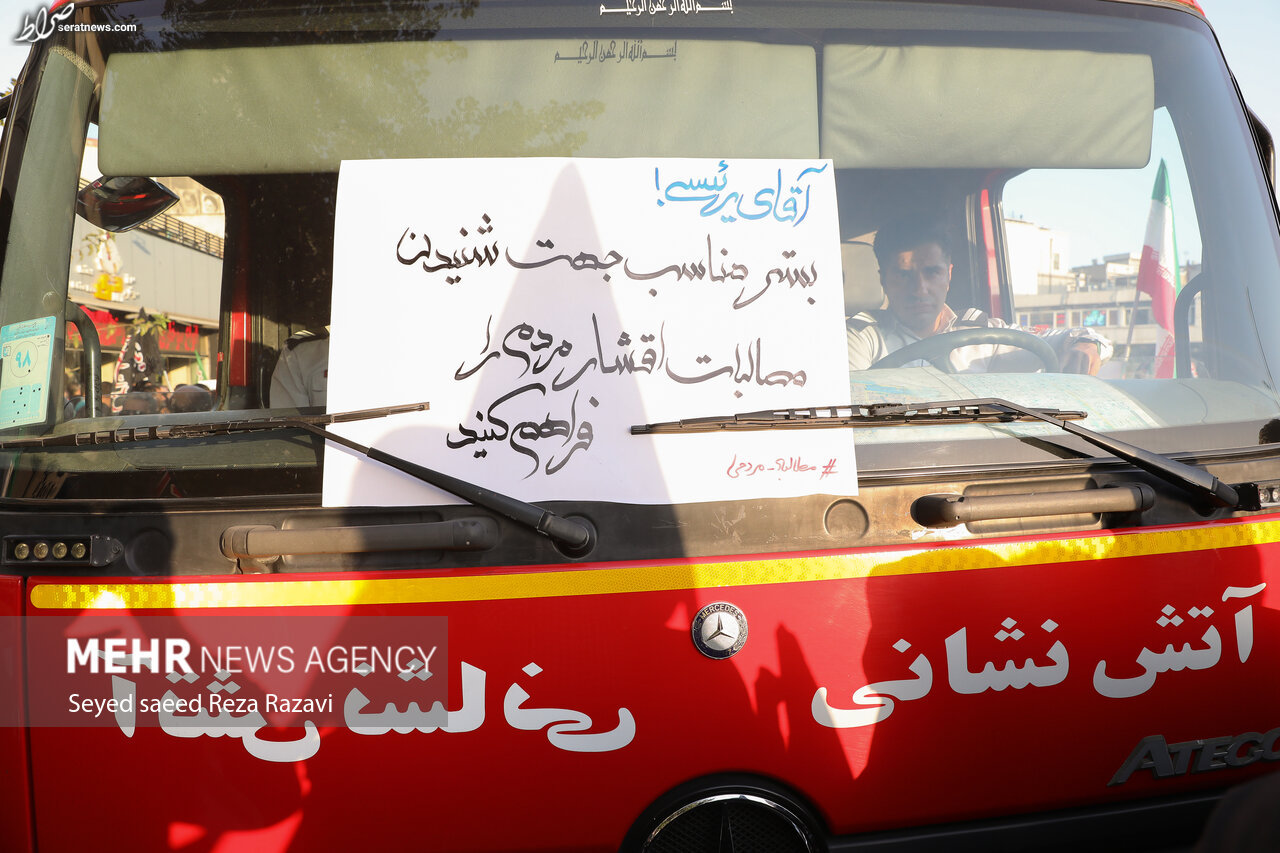 صراط
seratnews.com
بسم الله الرحمن الرحیم
بسم الله الرحمن الرحیم
آقای رئیسی!
بستر مناسب جهت شنیدن
مطالبات اقشار مردم را
فراهم کنید
#مطالبه_مردمی
۹۸
MERCEDES
آتش نشانی
آتش نشانی
MEHR NEWS AGENCY
Seyed saeed Reza Razavi
ATEGO